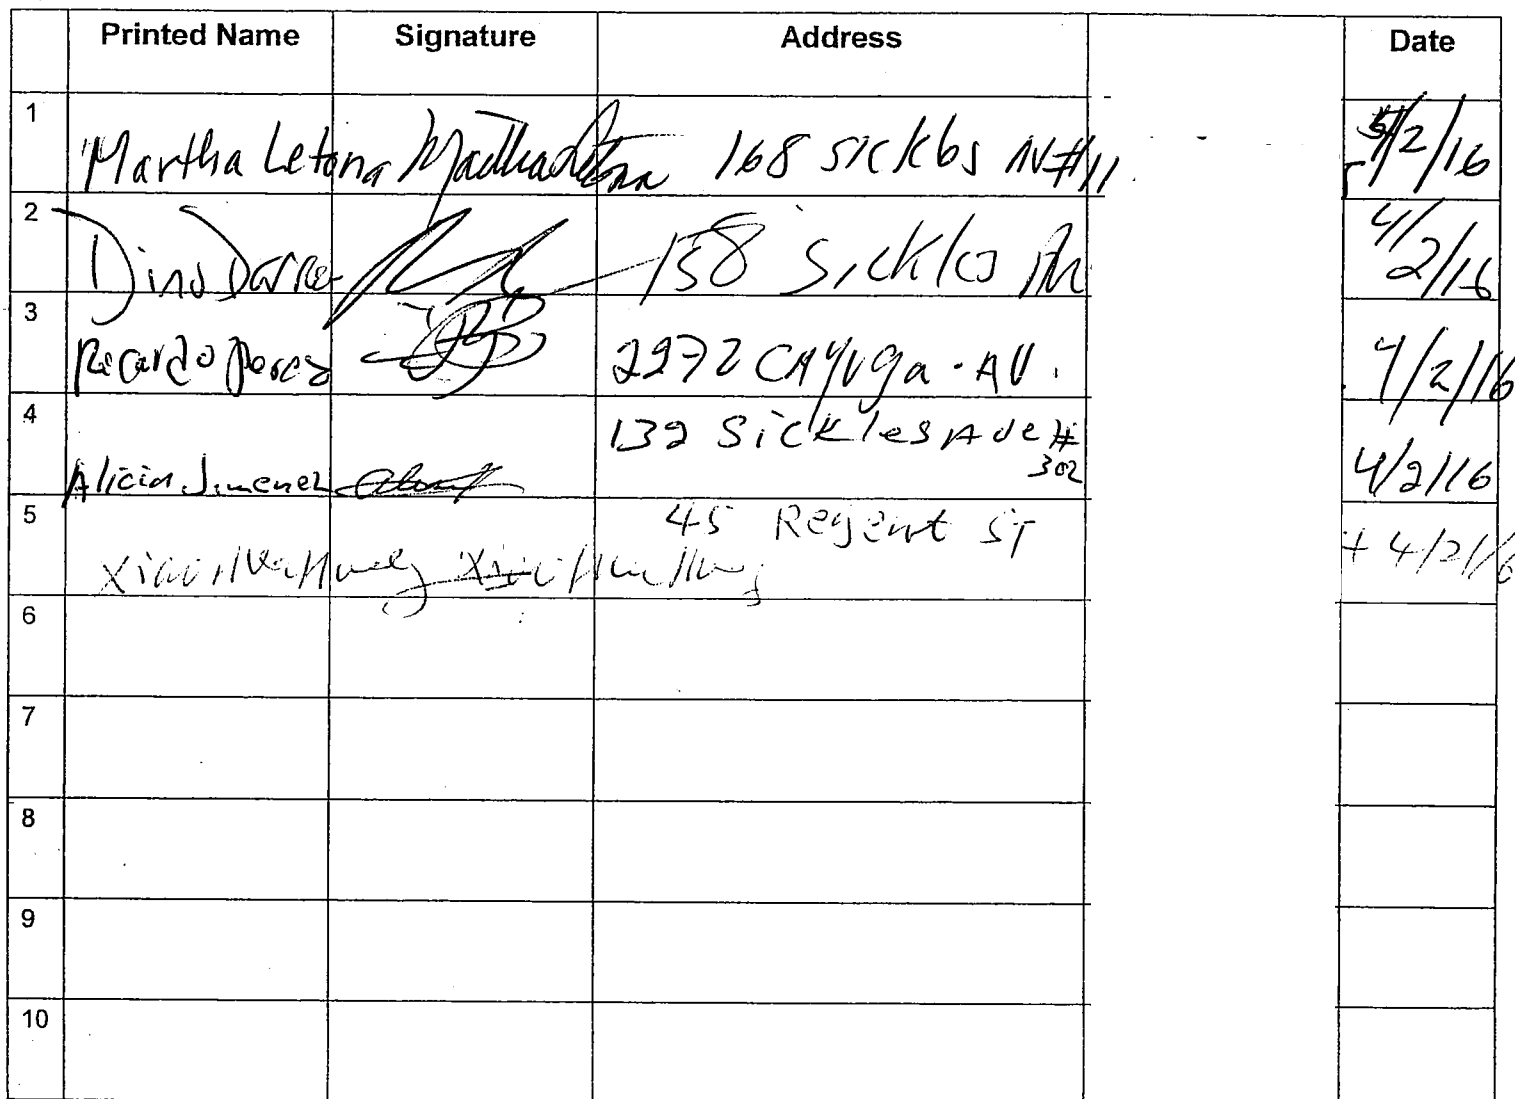 Printed Name Signature Address Date
1 Martha Letona Martha Letona 168 Sickles AV #11 /2/16
2 Dino 158 Sickles 4/2/16
3 Ricardo Perez 2272 CAYUga - AV. 4/2/16
4 Alicia Jimenez 132 Sickles Ave # 302 4/2/16
5 45 Regent ST 4/2/16
6
7
8
9
10